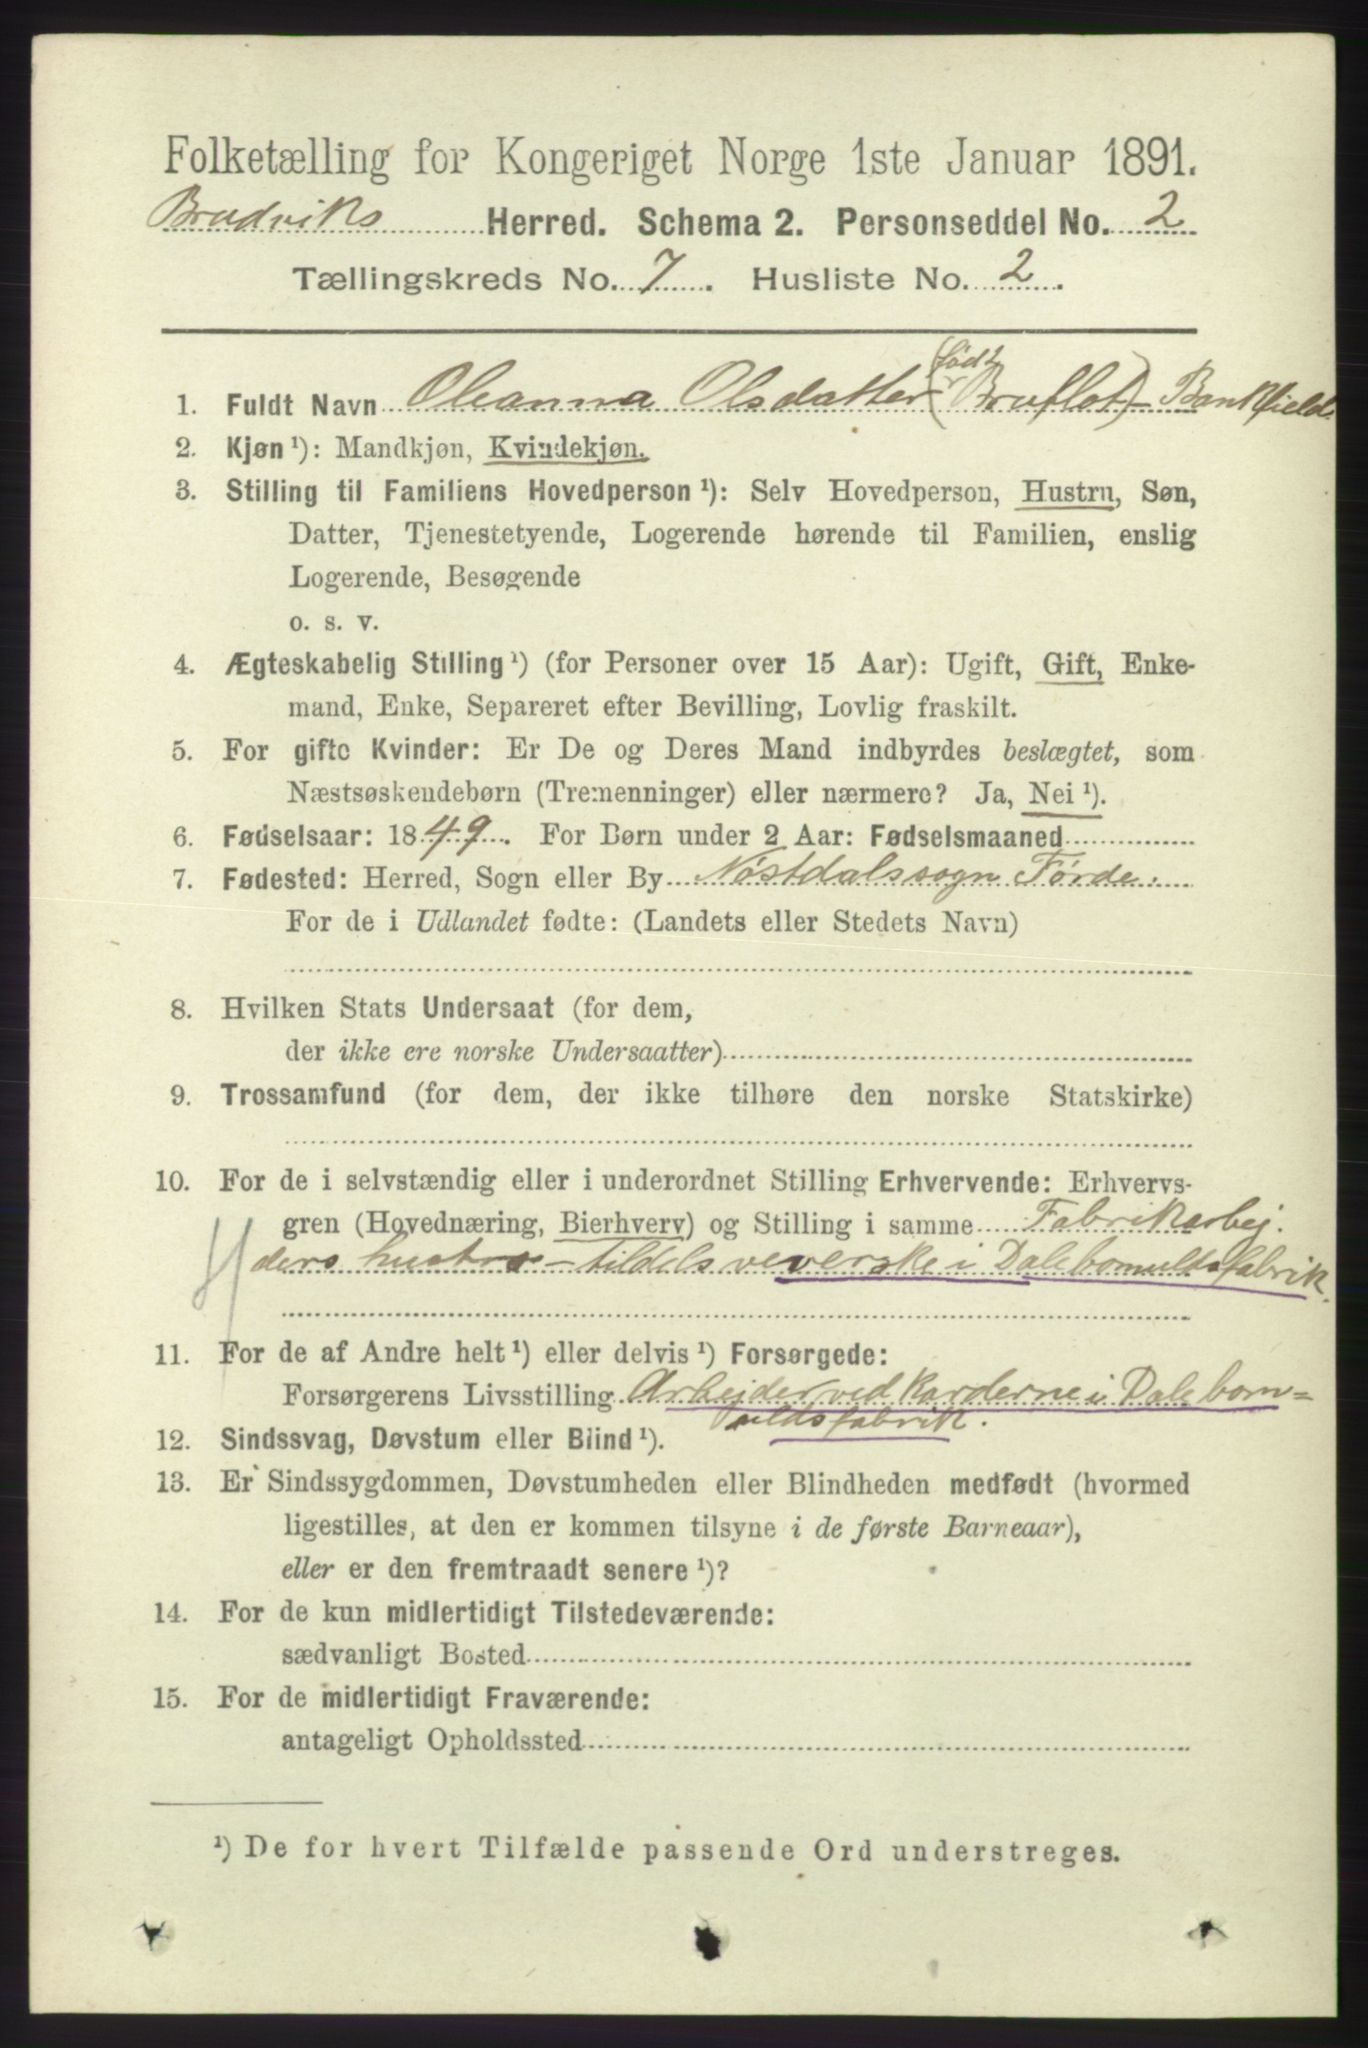 Folketælling for Kongeriget Norge 1ste Januar 1891.
Brudviks Herred. Schema 2. Personseddel No. 2
Tællingskreds No. 7. Husliste No. 2.
1. Fuldt Navn Oleanna Olsdatter (født Bruflot) Bankfield
2. Kjøn ¹): Mandkjøn, Kvindekjøn.
3. Stilling til Familiens Hovedperson ¹): Selv Hovedperson, Hustru, Søn,
Datter, Tjenestetyende, Logerende hørende til Familien, enslig
Logerende, Besøgende
o. s. v.
4. Ægteskabelig Stilling ¹) (for Personer over 15 Aar): Ugift, Gift, Enke-
mand, Enke, Separeret efter Bevilling, Lovlig fraskilt.
5. For gifte Kvinder: Er De og Deres Mand indbyrdes beslægtet, som
Næstsøskendebørn (Tremenninger) eller nærmere? Ja, Nei ¹).
6. Fødselsaar: 1849. For Børn under 2 Aar: Fødselsmaaned
7. Fødested: Herred, Sogn eller By Nøstdalssogn Førde.
For de i Udlandet fødte: (Landets eller Stedets Navn)
8. Hvilken Stats Undersaat (for dem,
der ikke ere norske Undersaatter)
9. Trossamfund (for dem, der ikke tilhøre den norske Statskirke)
10. For de i selvstændig eller i underordnet Stilling Erhvervende: Erhvervs-
gren (Hovednæring, Bierhverv) og Stilling i samme Fabrikarbej.
ders hustru - tildels veverske i Dale bomuldsfabrik.
11. For de af Andre helt ¹) eller delvis ¹) Forsørgede:
Forsørgerens Livsstilling Arbejder ved karderne i Dale bom=
uldsfabrik.
12. Sindssvag, Døvstum eller Blind ¹).
13. Er Sindssygdommen, Døvstumheden eller Blindheden medfødt (hvormed
ligestilles, at den er kommen tilsyne i de første Barneaar),
eller er den fremtraadt senere ¹)?
14. For de kun midlertidigt Tilstedeværende:
sædvanligt Bosted
15. For de midlertidigt Fraværende:
antageligt Opholdssted
¹) De for hvert Tilfælde passende Ord understreges.